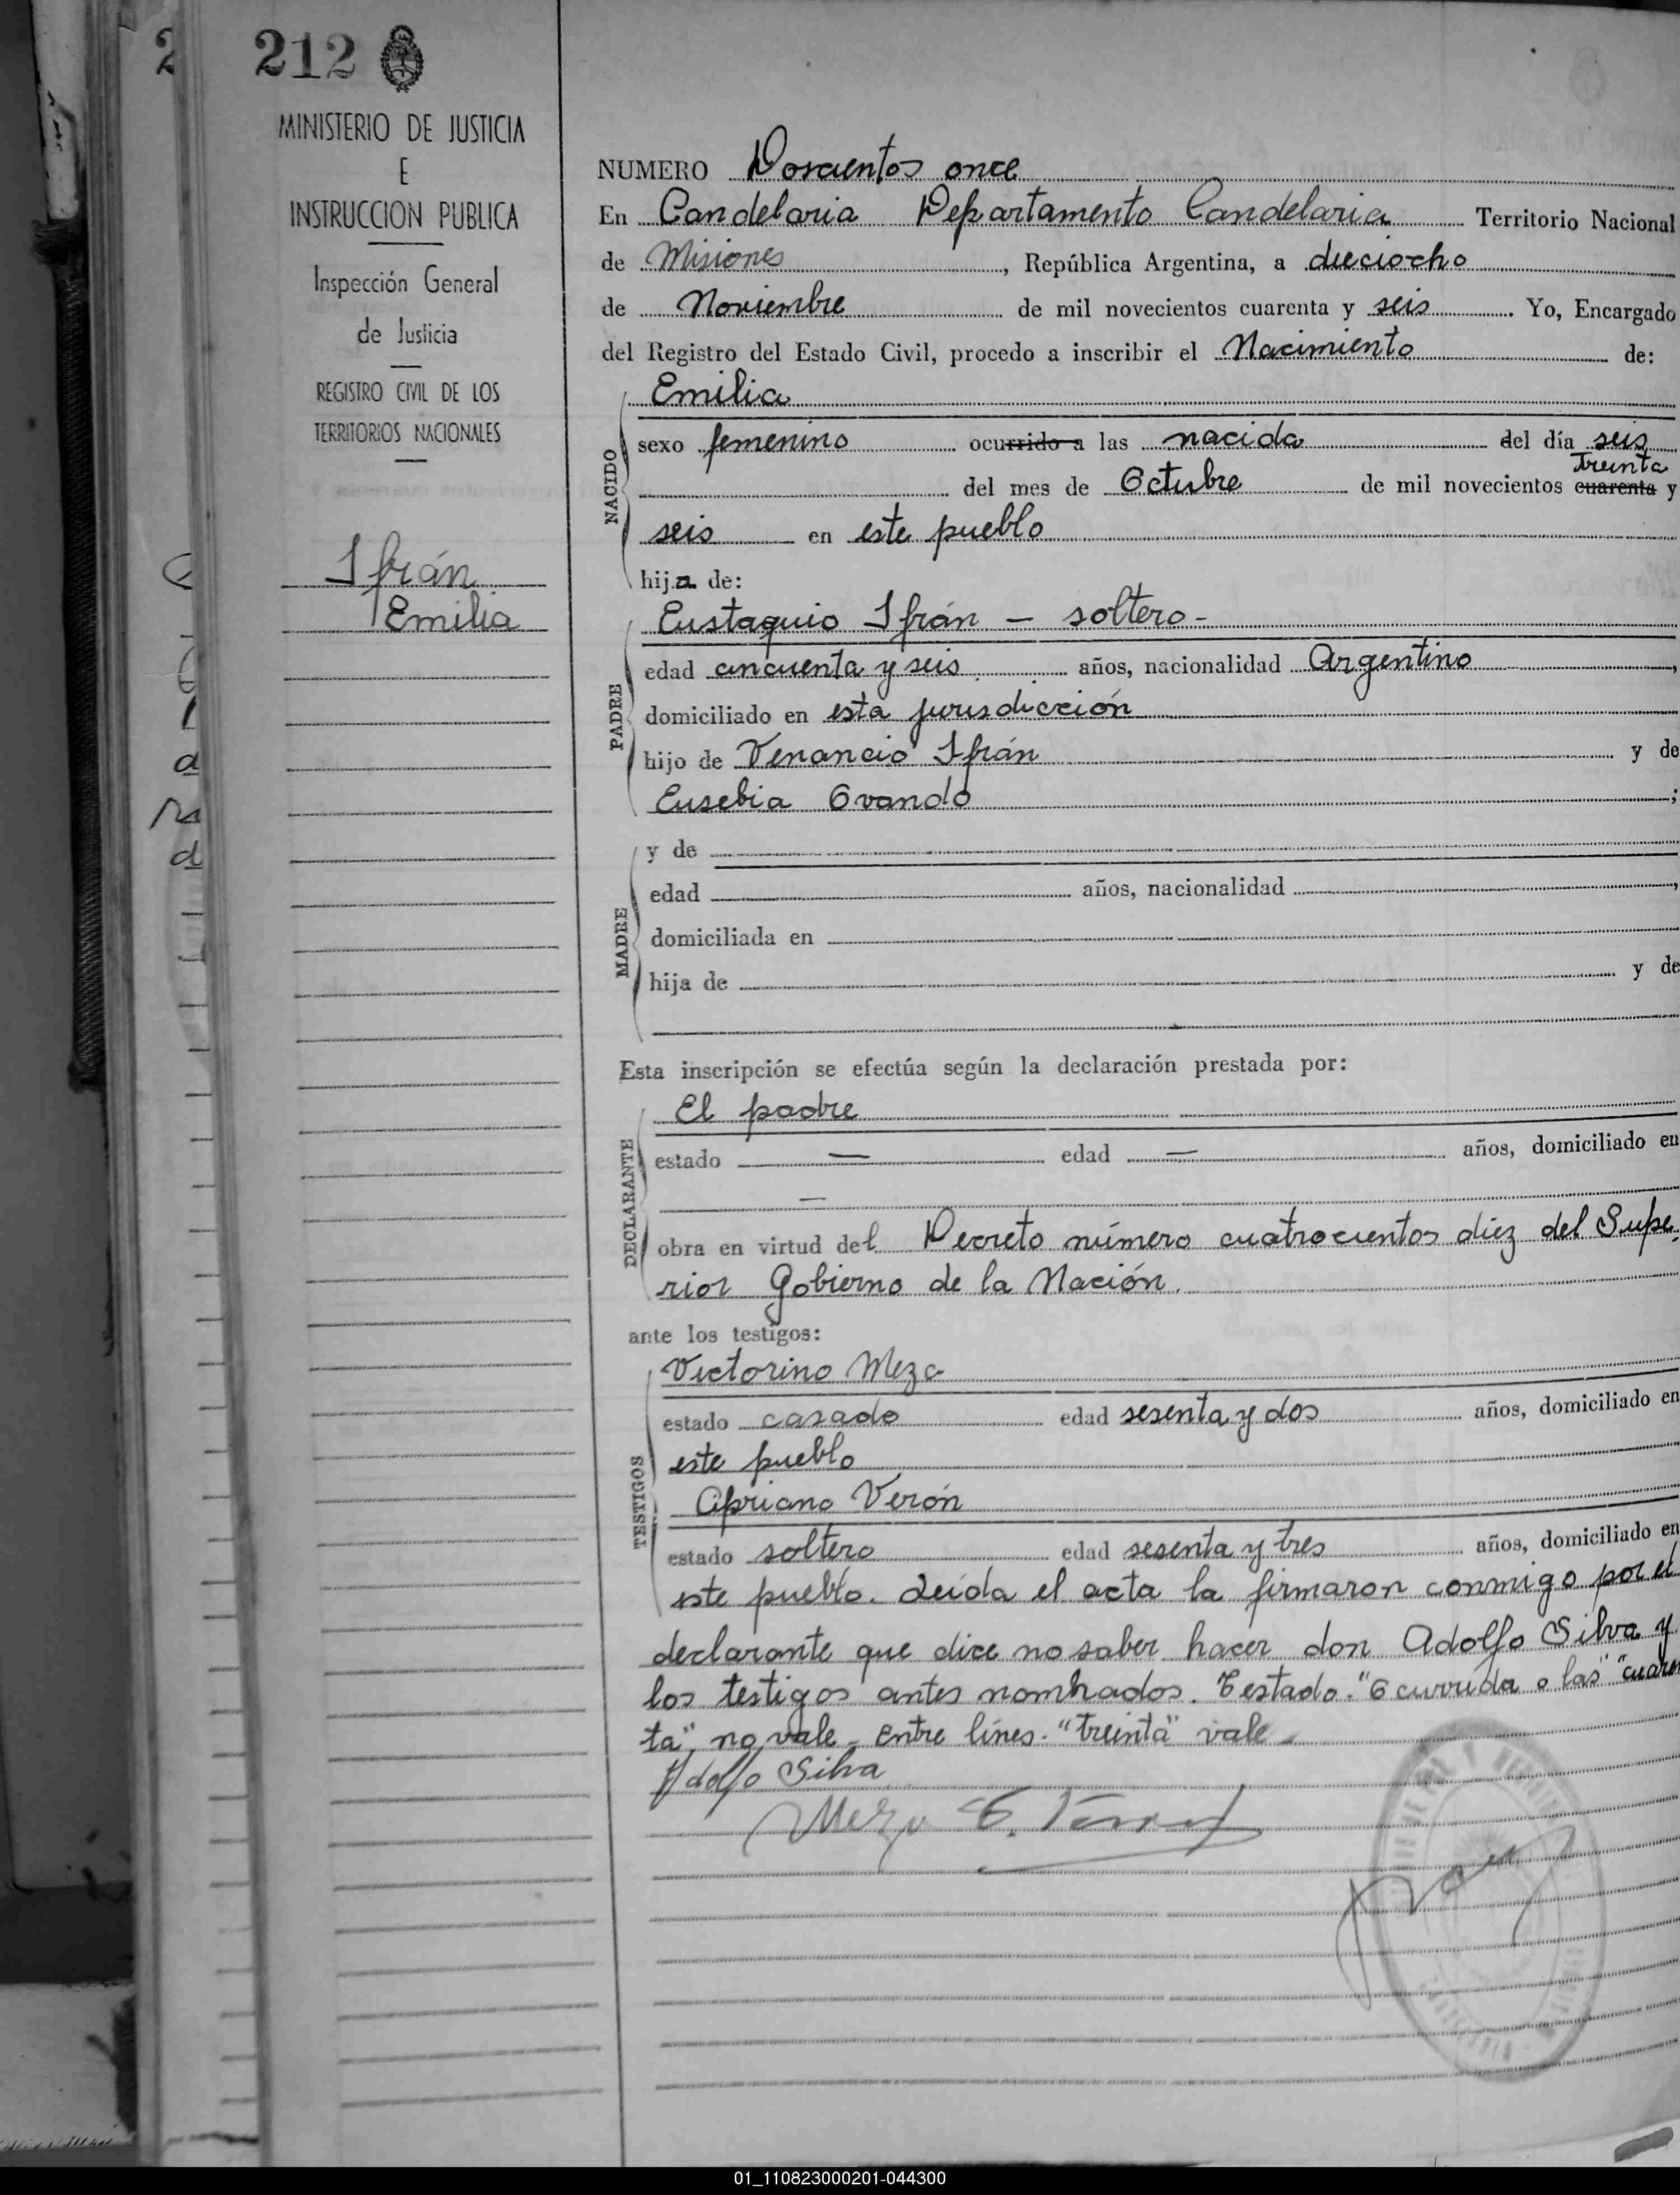 212
MINISTERIO DE JUSTICIA
E
INSTRUCCION PUBLICA
Inspección General
de Justicia
REGISTRO CIVIL DE LOS
TERRITORIOS NACIONALES
Ifrán
Emilia
NUMERO Doscientos once
En Candelaria Departamento Candelaria Territorio Nacional
de Misiones, República Argentina, a dieciocho
de Noviembre de mil novecientos cuarenta y seis. Yo, Encargado
del Registro del Estado Civil, procedo a inscribir el Nacimiento de:
NACIDO
Emilia
sexo femenino ocurrido a las nacida del día seis
Treinta
del mes de Octubre de mil novecientos cuarenta y
seis en este pueblo
hija de:
PADRE
Eustaquio Ifrán - soltero-
edad cincuenta y seis años, nacionalidad Argentino,
domiciliado en esta jurisdicción
hijo de Venancio Ifrán y de
Eusebia Ovando;
MADRE
y de
edad años, nacionalidad,
domiciliada en
hija de y de
Esta inscripción se efectúa según la declaración prestada por:
DECLARANTE
El padre
estado — edad — años, domiciliado en
—
obra en virtud del Decreto número cuatrocientos diez del Supe-
rior Gobierno de la Nación.
ante los testigos:
TESTIGOS
Victorino Meza
estado casado edad sesenta y dos años, domiciliado en
este pueblo
Cipriano Verón
estado soltero edad sesenta y tres años, domiciliado en
este pueblo. Leída el acta la firmaron conmigo por el
declarante que dice no saber hacer don Adolfo Silva y
los testigos antes nombrados. Testado. "Ocurrida a las" "cuaren
ta", no vale - Entre lines. "treinta" vale -
Adolfo Silva
Meza
01_110823000201-044300